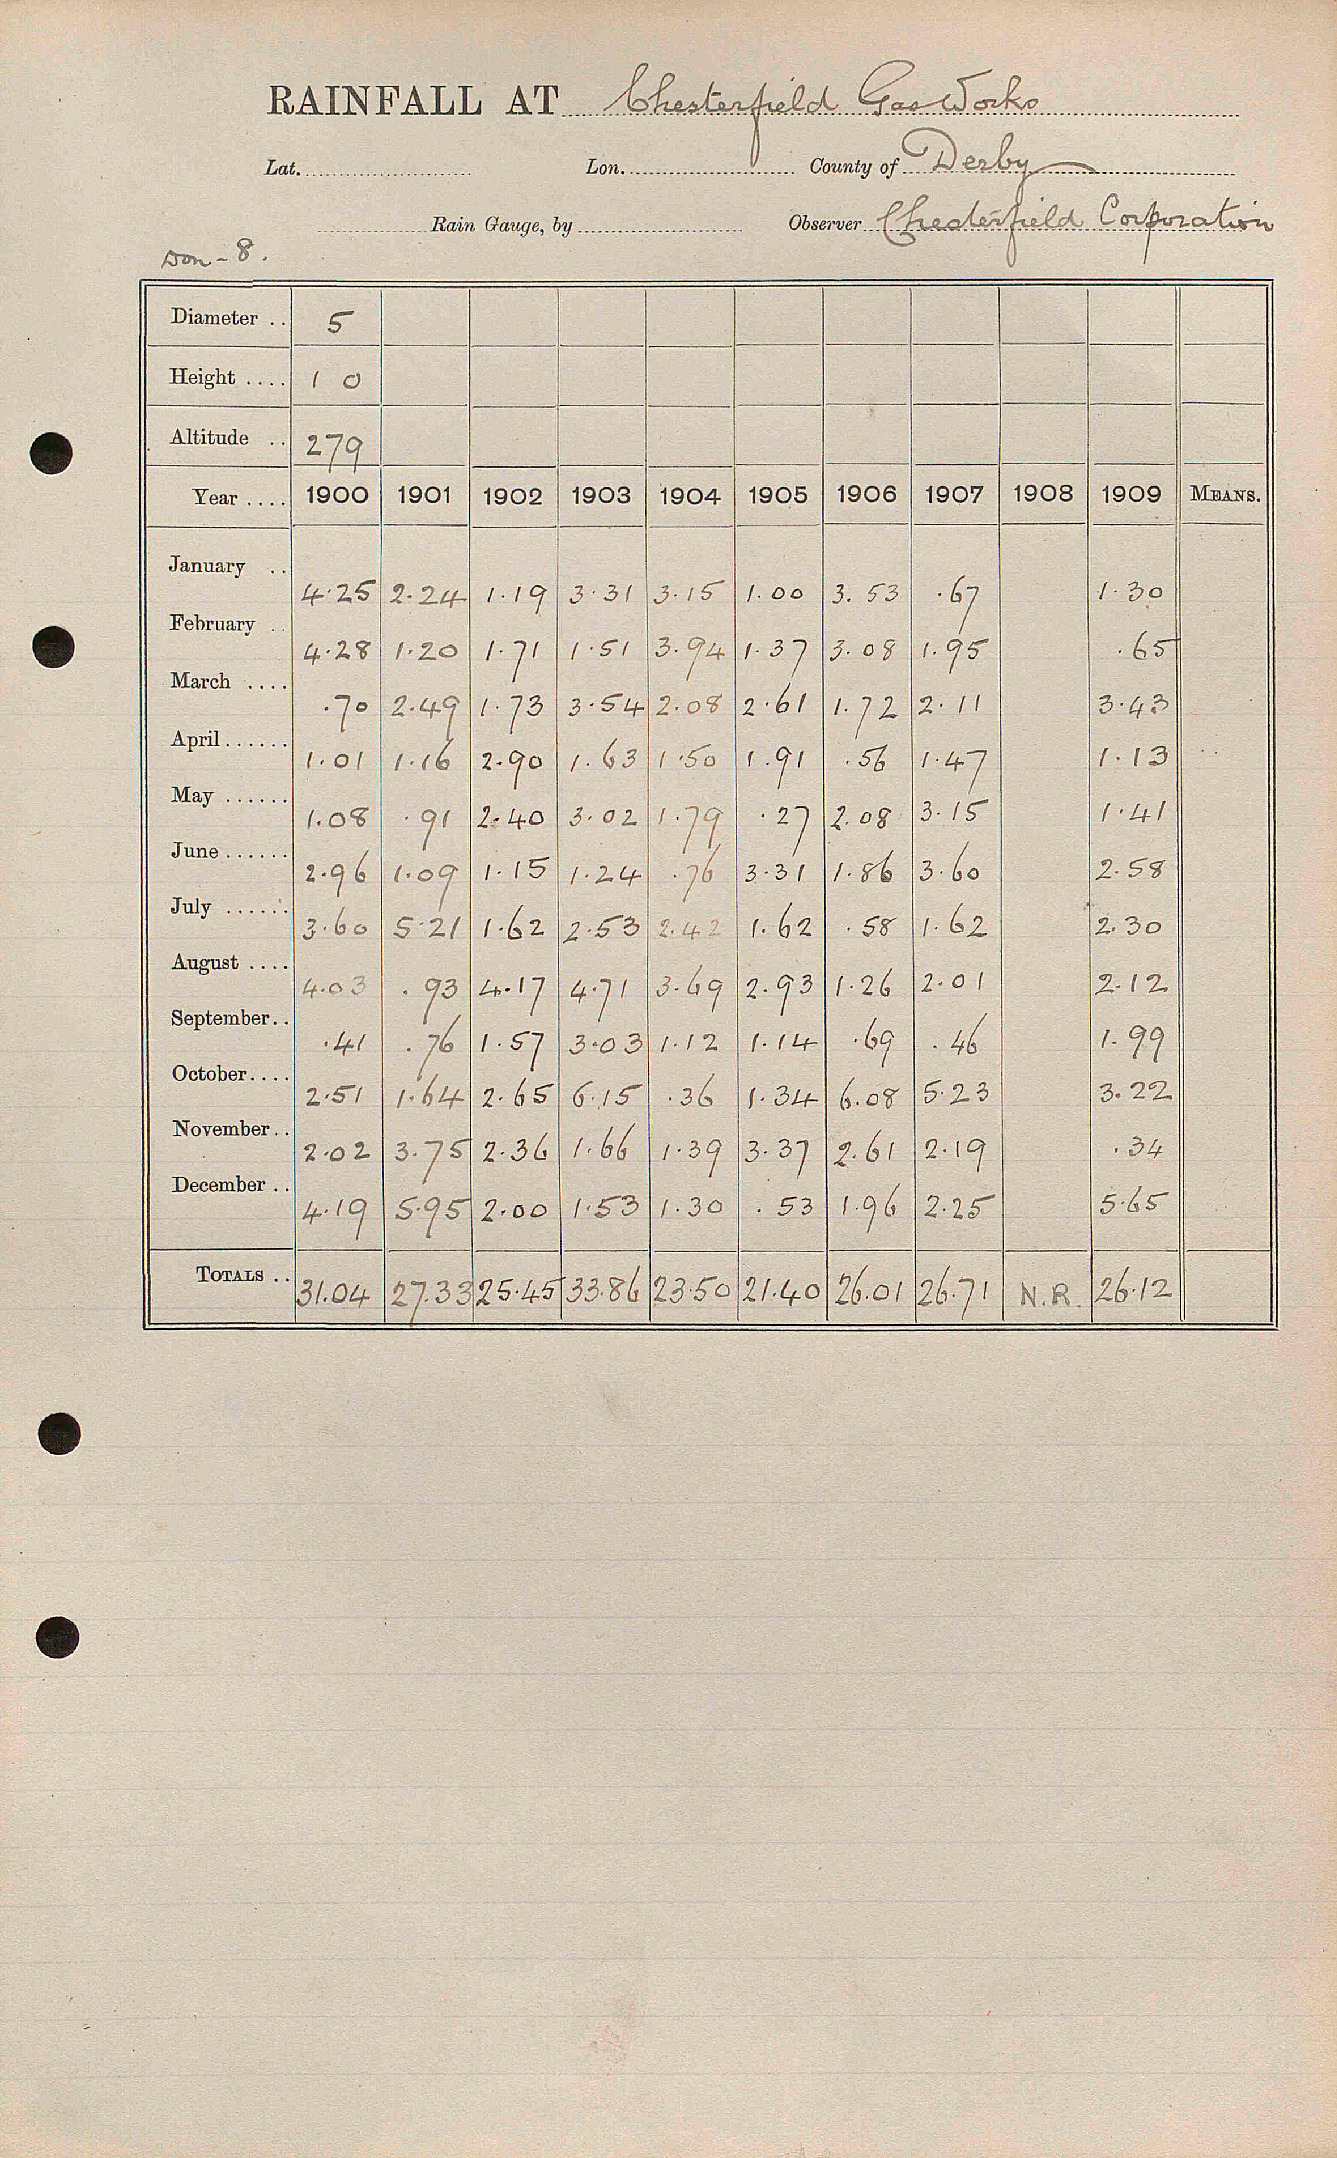 RAINFALL AT Chesterfield Gas Works
Lat. Lon. County of Derby
Rain Gauge, by Observer Chesterfield Corporation
Don - 8.
Diameter .. 5
Height .... 1 0
Altitude .. 279
Year .... 1900 1901 1902 1903 1904 1905 1906 1907 1908 1909 MEANS.
January .. 4.25 2.24 1.19 3.31 3.15 1.00 3.53 .67 1.30
February .. 4.28 1.20 1.71 1.51 3.94 1.37 3.08 1.95 .65
March .... .70 2.49 1.73 3.54 2.08 2.61 1.72 2.11 3.43
April...... 1.01 1.16 2.90 1.63 1.50 1.91 .56 1.47 1.13
May ...... 1.08 .91 2.40 3.02 1.79 .27 2.08 3.15 1.41
June...... 2.96 1.09 1.15 1.24 .76 3.31 1.86 3.60 2.58
July ...... 3.60 5.21 1.62 2.53 2.42 1.62 .58 1.62 2.30
August .... 4.03 .93 4.17 4.71 3.69 2.93 1.26 2.01 2.12
September.. .41 .76 1.57 3.03 1.12 1.14 .69 .46 1.99
October.... 2.51 1.64 2.65 6.15 .36 1.34 6.08 5.23 3.22
November.. 2.02 3.75 2.36 1.66 1.39 3.37 2.61 2.19 .34
December .. 4.19 5.95 2.00 1.53 1.30 .53 1.96 2.25 5.65
TOTALS .. 31.04 27.33 25.45 33.86 23.50 21.40 26.01 26.71 N.R. 26.12